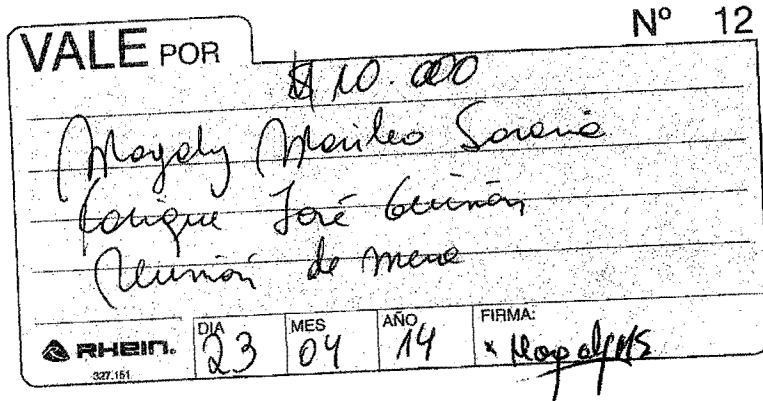 Nº 12
VALE POR
$ 10.000
Magaly Marileo Saravia
José
Reunión de mesa
RHEIN.
327.151
DIA 23 MES 04 AÑO 14 FIRMA:
x Magaly MS